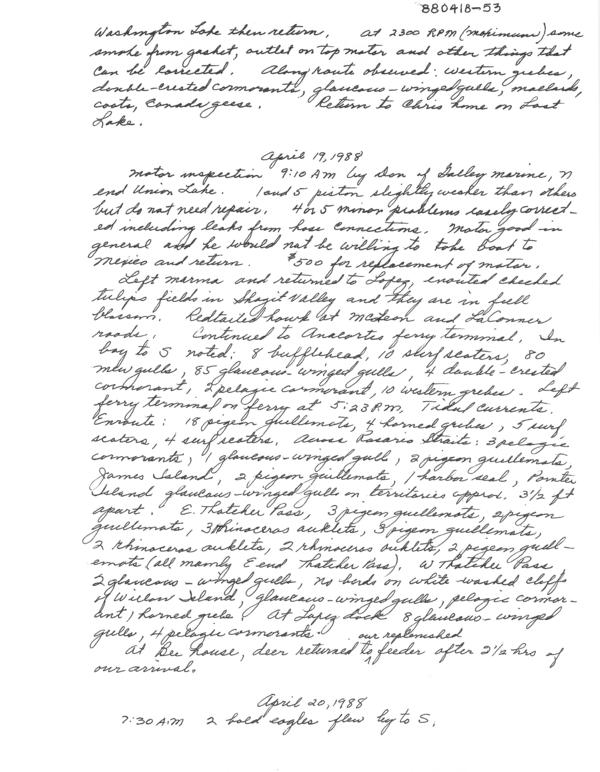 880418-53
Washington Lake then return. At 2300 RPM (maximum) some
smoke from gasket, outlet on top motor and other things that
can be corrected. Along route observed: western grebes,
double-crested cormorants, glaucous-winged gulls, mallards,
coots, Canada geese. Return to Chris home on Lost
Lake.
April 19, 1988
Motor inspection 9:10 AM by Don of Galley Marine, N
end Union Lake. 1 and 5 piston slightly weaker than others
but do not need repair. 4 or 5 minor problems easely correct-
ed including leaks from hose connections. Motor good in
general and he would not be willing to take boat to
Mexico and return. $500 for replacement of motor.
Left marina and returned to Lopez, enouted checked
tulips fields in Skagit Valley and they are in full
blossom. Redtailed hawk at McLean and LaConner
roads. Continued to Anacortes ferry terminal. In
bay to S noted: 8 bufflehead, 10 surf scoters, 80
mew gulls, 85 glaucous-winged gulls, 4 double-crested
cormorant, 2 pelagic cormorant, 10 western grebes. Left
ferry terminal on ferry at 5:23 P.M. Tidal currents.
Enroute: 18 pigeon guillemots, 4 horned grebes, 5 surf
scoters, 4 surf scoters. Across Rosario Straits: 3 pelagic
cormorants, 1 glaucous-winged gull, 2 pigeon guillemots,
James Island, 2 pigeon guillemots, 1 harbor seal, Pointer
Island glaucous-winged gulls on territories approx. 3 1/2 ft
apart. E. Thatcher Pass, 3 pigeon guillemots, 2 pigeon
guillemots, 3 rhinoceros auklets, 3 pigeon guillemots,
2 rhinoceros auklets, 2 rhinoceros auklets, 2 pigeon guill-
emots (all mainly E end Thatcher Pass). W Thatcher Pass
2 glaucous-winged gulls, no birds on white-washed cliffs
of Willow Island, glaucous-winged gulls, pelagic cormor-
ant, horned grebe. At Lopez dock 8 glaucous-winged
gulls, 4 pelagic cormorants.
At Bee house, deer returned to our replenished feeder after 2 1/2 hrs of
our arrival.
April 20, 1988
7:30 AM 2 bald eagles flew by to S.